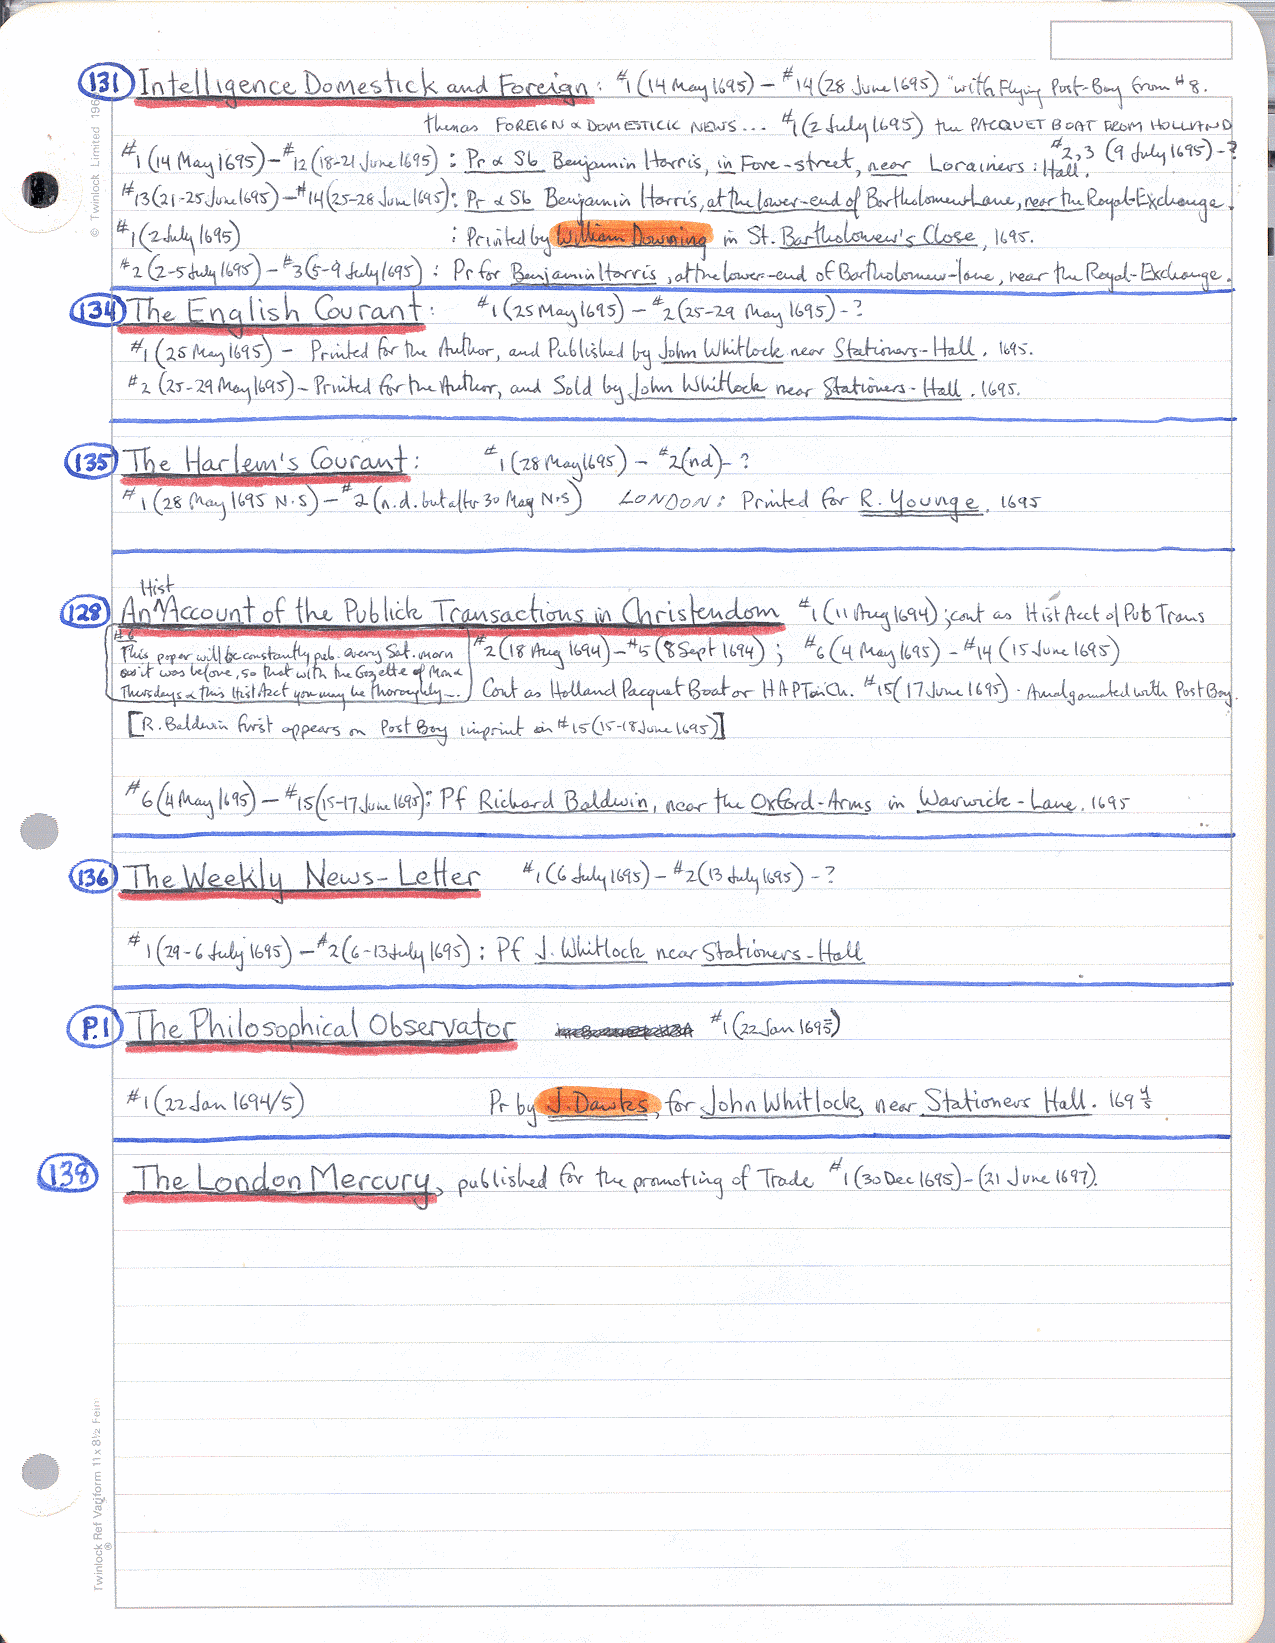 131 Intelligence Domestick and Foreign : #1 (14 May 1695) – #14 (28 June 1695) "with Flying Post-Boy from #8.
thence as FOREIGN & DOMESTICK NEWS... #1 (2 July 1695) the PACQUET BOAT FROM HOLLAND
#2,3 (9 July 1695) - ?
#1 (14 May 1695) – #12 (18-21 June 1695) : Pr & Sb Benjamin Harris, in Fore-street, near Lorainers : Hall.
#13 (21-25 June 1695) – #14 (25-28 June 1695) : Pr & Sb Benjamin Harris, at the lower-end of Bartholomew Lane, near the Royal-Exchange.
#1 (2 July 1695) : Printed by William Downing in St. Bartholomew's Close, 1695.
#2 (2-5 July 1695) – #3 (5-9 July 1695) : Pr for Benjamin Harris, at the lower-end of Bartholomew-lane, near the Royal-Exchange.
134 The English Courant : #1 (25 May 1695) – #2 (25-29 May 1695) - ?
#1 (25 May 1695) – Printed for the Author, and Published by John Whitlock near Stationers-Hall. 1695.
#2 (25-29 May 1695) – Printed for the Author, and Sold by John Whitlock near Stationers-Hall. 1695.
135 The Harlem's Courant : #1 (28 May 1695) – #2 (nd) - ?
#1 (28 May 1695 N.S) – #2 (n.d. but after 30 May N.S) LONDON : Printed for R. Younge, 1695
Hist
128 An ^Account of the Publick Transactions in Christendom #1 (11 Aug 1694) ; cont as Hist Acct of Pub Trans
#6
This paper will be constantly pub. every Sat. morn
as it was before, so that with the Gazette of Mon &
Thursdays & this Hist Acct you may be thoroughly...
#2 (18 Aug 1694) – #5 (8 Sept 1694) ; #6 (4 May 1695) – #14 (15 June 1695)
Cont as Holland Pacquet Boat or HAPTinCh. #15 (17 June 1695) - Amalgamated with Post Boy.
[R. Baldwin first appears on Post Boy imprint in #15 (15-18 June 1695)]
#6 (4 May 1695) – #15 (15-17 June 1695) : Pf Richard Baldwin, near the Oxford-Arms in Warwick-Lane. 1695
136 The Weekly News-Letter #1 (6 July 1695) – #2 (13 July 1695) - ?
#1 (29-6 July 1695) – #2 (6-13 July 1695) : Pf J. Whitlock near Stationers-Hall
P.1 The Philosophical Observator #1 (22 Jan 1695)
#1 (22 Jan 1694/5) Pr by J. Dawks, for John Whitlock, near Stationers Hall. 169 4/5
138 The London Mercury, published for the promoting of Trade #1 (30 Dec 1695) – (21 June 1697).
Twinlock Ref Variform 11 x 8½ Fein